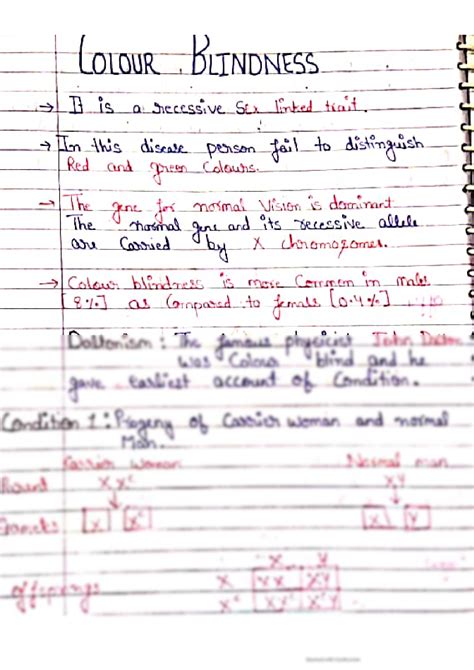 COLOUR BLINDNESS
→ It is a recessive sex linked trait.
→ In this disease person fail to distinguish
Red and green Colours.
→ The gene for normal Vision is dominant
The normal gene and its recessive allele
are Carried by X chromozomes.
→ Colour blindness is more Common in males
[8%] as Compared to female [0.4%]
Daltonism : The famous physicist John Dalton
was Colour blind and he
gave earliest account of Condition.
Condition 1 : Progeny of Carrier woman and normal
Man.
Carrier woman Normal man
Parent XXᶜ XY
Gametes X Xᶜ X Y
offsprings X Y
X XX XY
Xᶜ XᶜX XᶜY